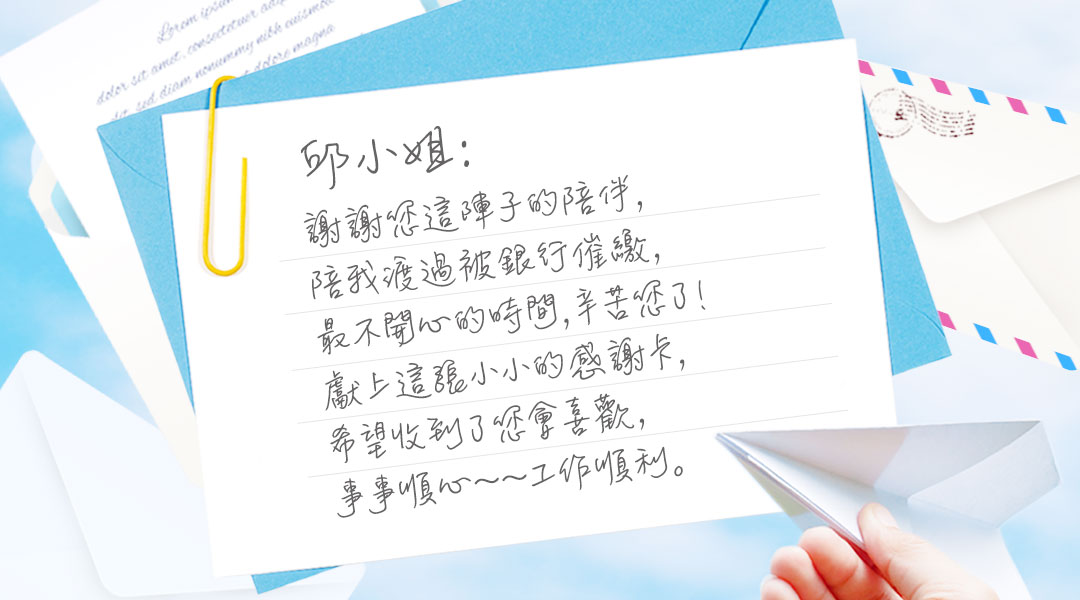 Lorem ipsum
dolor sit amet, consectetuer adip
sit, sed diam nonummy nibh euismod
ut dolore magna
邱小姐：
謝謝您這陣子的陪伴，
陪我渡過被銀行催繳，
最不開心的時間，辛苦您了！
獻上這張小小的感謝卡，
希望收到了您會喜歡，
事事順心～～工作順利。